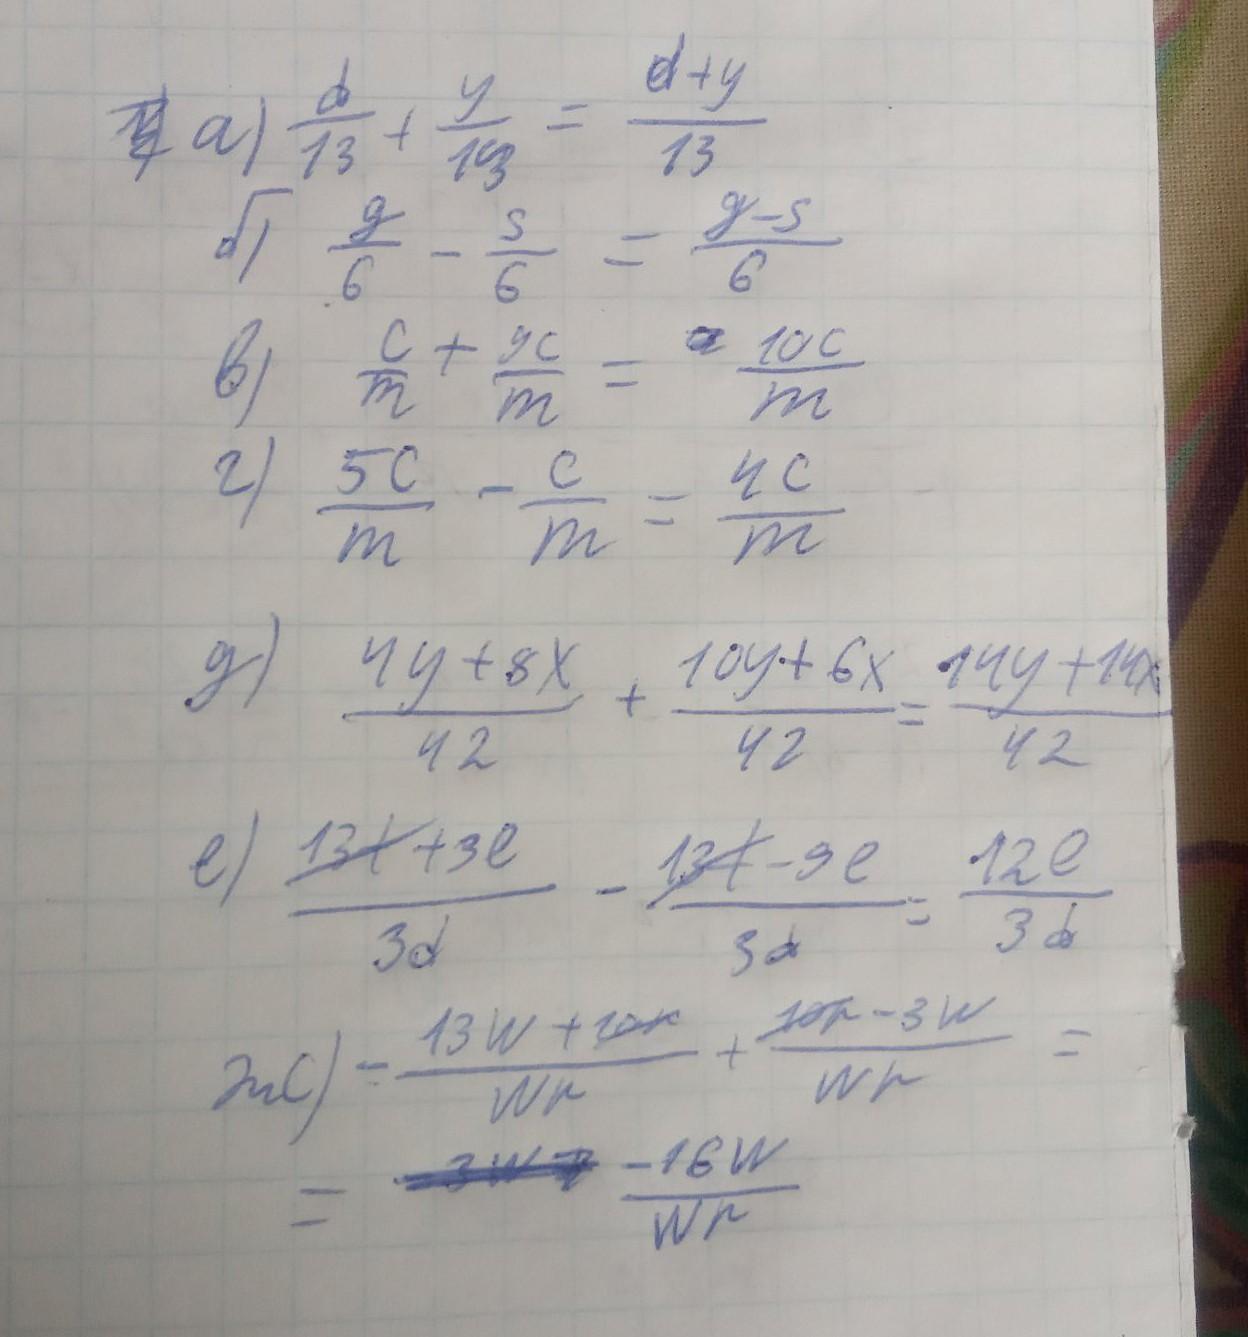 а) d/13 + y/13 = d+y/13
б) g/6 - s/6 = g-s/6
в) c/m + 9c/m = 10c/m
г) 5c/m - c/m = 4c/m
д) 4y+8x/42 + 10y+6x/42 = 14y+14x/42
е) 13t+3l/3d - 13t-9l/3d = 12l/3d
ж) - 13w+10r/wr + 10r-3w/wr =
= -16w/wr